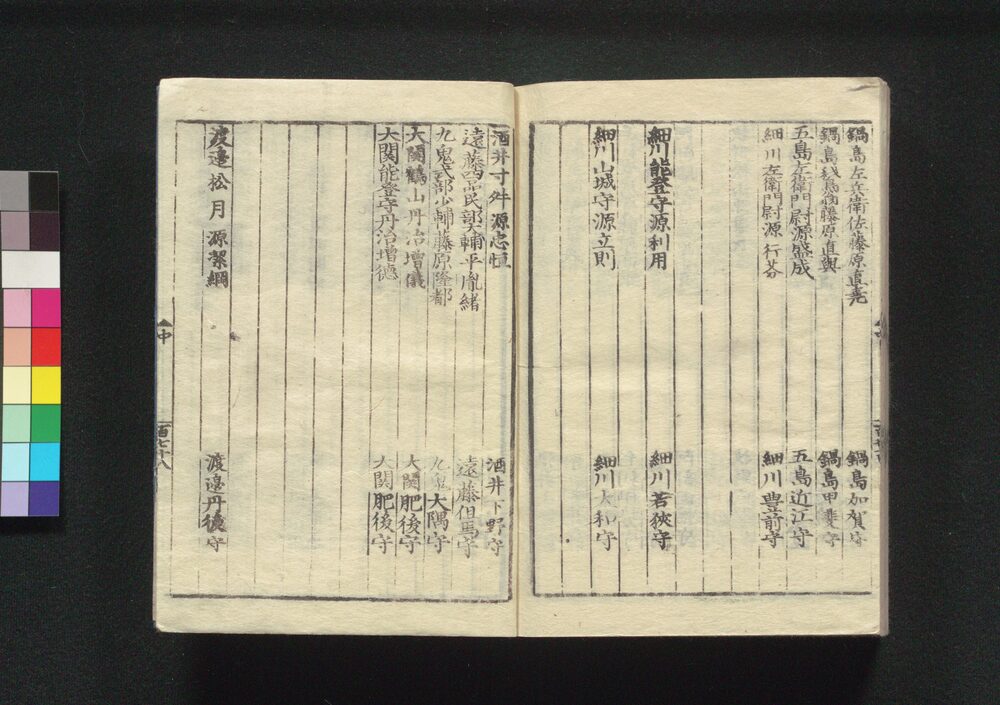 鍋島左兵衛佐藤原直堯　鍋島加賀守
鍋島　藤原直與　鍋島甲斐守
五島左衛門尉源盛成　五島近江守
細川左衛門尉源行芬　細川豊前守
細川能登守源利用　細川若狹守
細川山城守源立則　細川大和守
酒井　源忠恒　酒井下野守
遠藤　民部大輔平胤緒　遠藤但馬守
九鬼式部少輔藤原隆都　九鬼大隅守
大関鶴山丹治増儀　大関肥後守
大関能登守丹治増德　大関肥後守
渡邉松月源潔綱　渡邉丹後守
中
百七十八